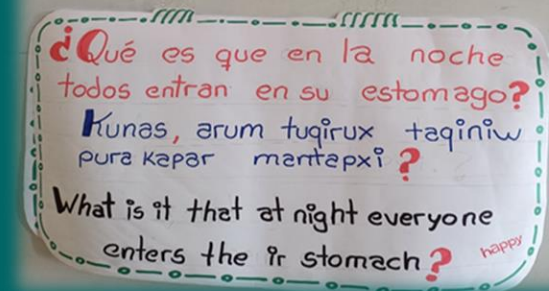 ¿Qué es que en la noche
todos entran en su estomago?
Kunas, arum tuqirux taqiniw
pura kapar mantapxi?
What is it that at night everyone
enters the ir stomach?
happy